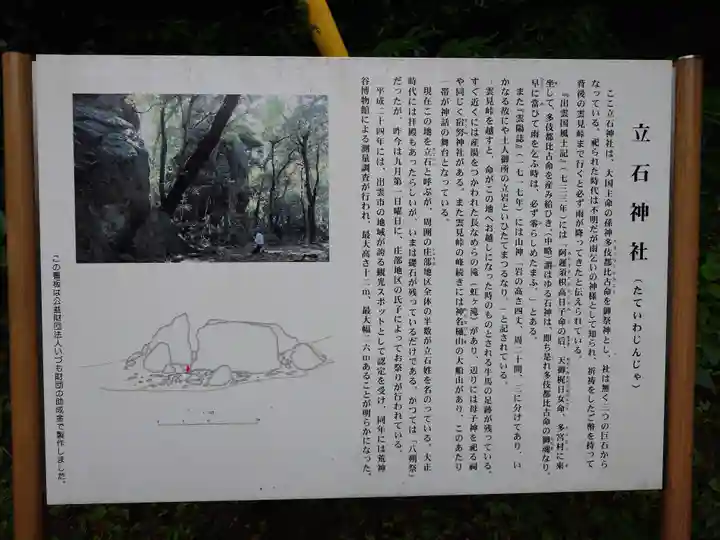 立石神社(たていわじんじゃ)
ここ立石神社は、大国主命の孫神多伎都比古命を御祭神とし、社は無く三つの巨石から
なっている。祀られた時代は不明だが雨乞いの神様として知られ、祈祷をしたご幣を持って
背後の雲見峠まで行くと必ず雨が降ってきたと伝えられている。
『出雲国風土記』(七三三年)には「阿遅須枳高日子命の后、天御梶日女命、多宮村に来
坐して、多伎都比古命を産み給ひき(中略)謂はゆる石神は、即ち是れ多伎都比古命の御魂なり。
旱に當ひて雨を乞ふ時は、必ず零らしめたまふ。」とある。
また『雲陽誌』(一七一七年)には山神「岩の高さ四丈、周二十間、三に分けてあり、い
かなる故にや土人御所の立岩といひたてまつるなり。」と記されている。
雲見峠を越すと、命がこの地へお越しになった時のものとされる牛馬の足跡が残っている。
すぐ近くには産湯をつかわれた長なめらの滝(虹ヶ滝)があり、辺りには母子神を祀る祠
や同じく宿努神社がある。また雲見峠の峰続きには神名樋山の大船山があり、このあたり
一帯が神話の舞台となっている。
現在この地を立石と呼ぶが、周囲の庄部地区全体の半数が立石姓を名のっている。大正
時代には拝殿もあったらしいが、いまは礎石が残っているだけである。かつては「八朔祭」
だったが、昨今は九月第一日曜日に、庄部地区の氏子によってお祭りが行われている。
平成二十四年には、出雲市の地域が誇る観光スポットとして認定を受け、同年には荒神
谷博物館による測量調査が行われ、最大高さ十二m、最大幅二六mあることが明らかになった。
この看板は公益財団法人いづも財団の助成金で製作しました。